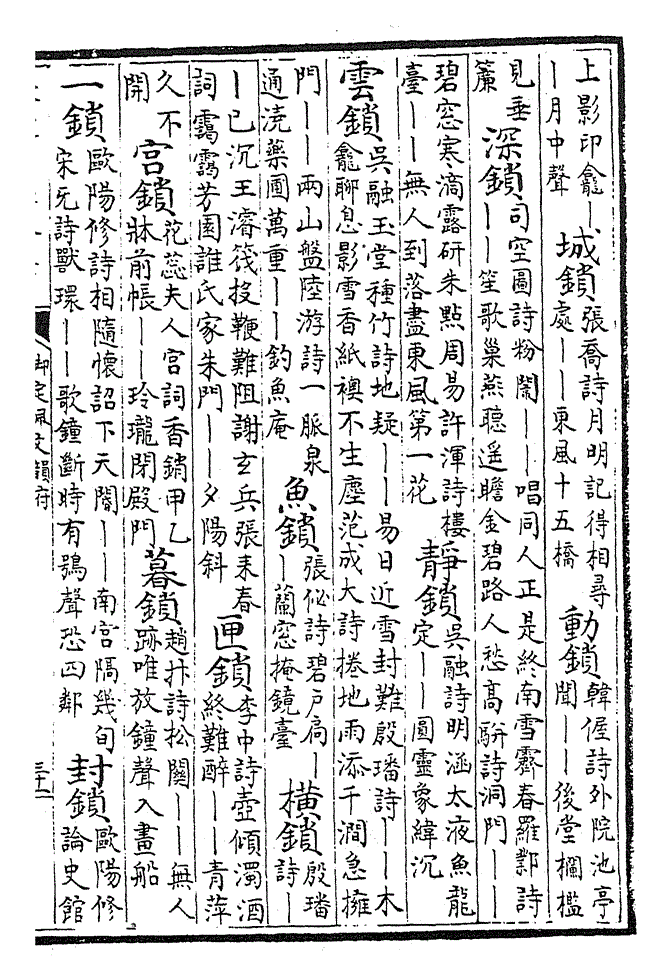 上影印龕｜
｜月中聲
城鎖
張喬詩月明記得相尋
處｜｜東風十五橋
動鎖
韓偓詩外院池亭
聞｜｜後堂欄檻
見垂
簾
深鎖
司空圖詩粉闈｜｜唱同人正是終南雪霽春羅鄴詩
｜｜笙歌巢燕聽遥瞻金碧路人愁高駢詩洞門｜｜
碧窓寒滴露研朱點周易許渾詩樓
臺｜｜無人到落盡東風第一花
靜鎖
吳融詩明涵太液魚龍
定｜｜圓靈象緯沉
雲鎖
吳融玉堂種竹詩地疑｜｜易日近雪封難殷璠詩｜｜木
龕聊息影雪香紙襖不生塵范成大詩捲地雨添千澗急擁
門｜｜兩山盤陸游詩一脈泉
通澆藥圃萬重｜｜釣魚庵
魚鎖
張佖詩碧戶扃｜
｜蘭窓掩鏡臺
橫鎖
殷璠
詩｜
｜已沉王濬筏投鞭難阻謝玄兵張耒春
詞靄靄芳園誰氏家朱門｜｜夕陽斜
匣鎖
李中詩壺傾濁酒
終難醉｜｜青萍
久不
開
宫鎖
花蕊夫人宫詞香銷甲乙
牀前帳｜｜玲瓏閉殿門
暮鎖
趙抃詩松關｜｜無人
跡唯放鐘聲入畫船
一鎖
歐陽修詩相隨懷詔下天閽｜｜南宫隔幾旬
宋旡詩獸環｜｜歌鐘斷時有鴞聲恐四鄰
封鎖
歐陽修
論史館
御定佩文韻府